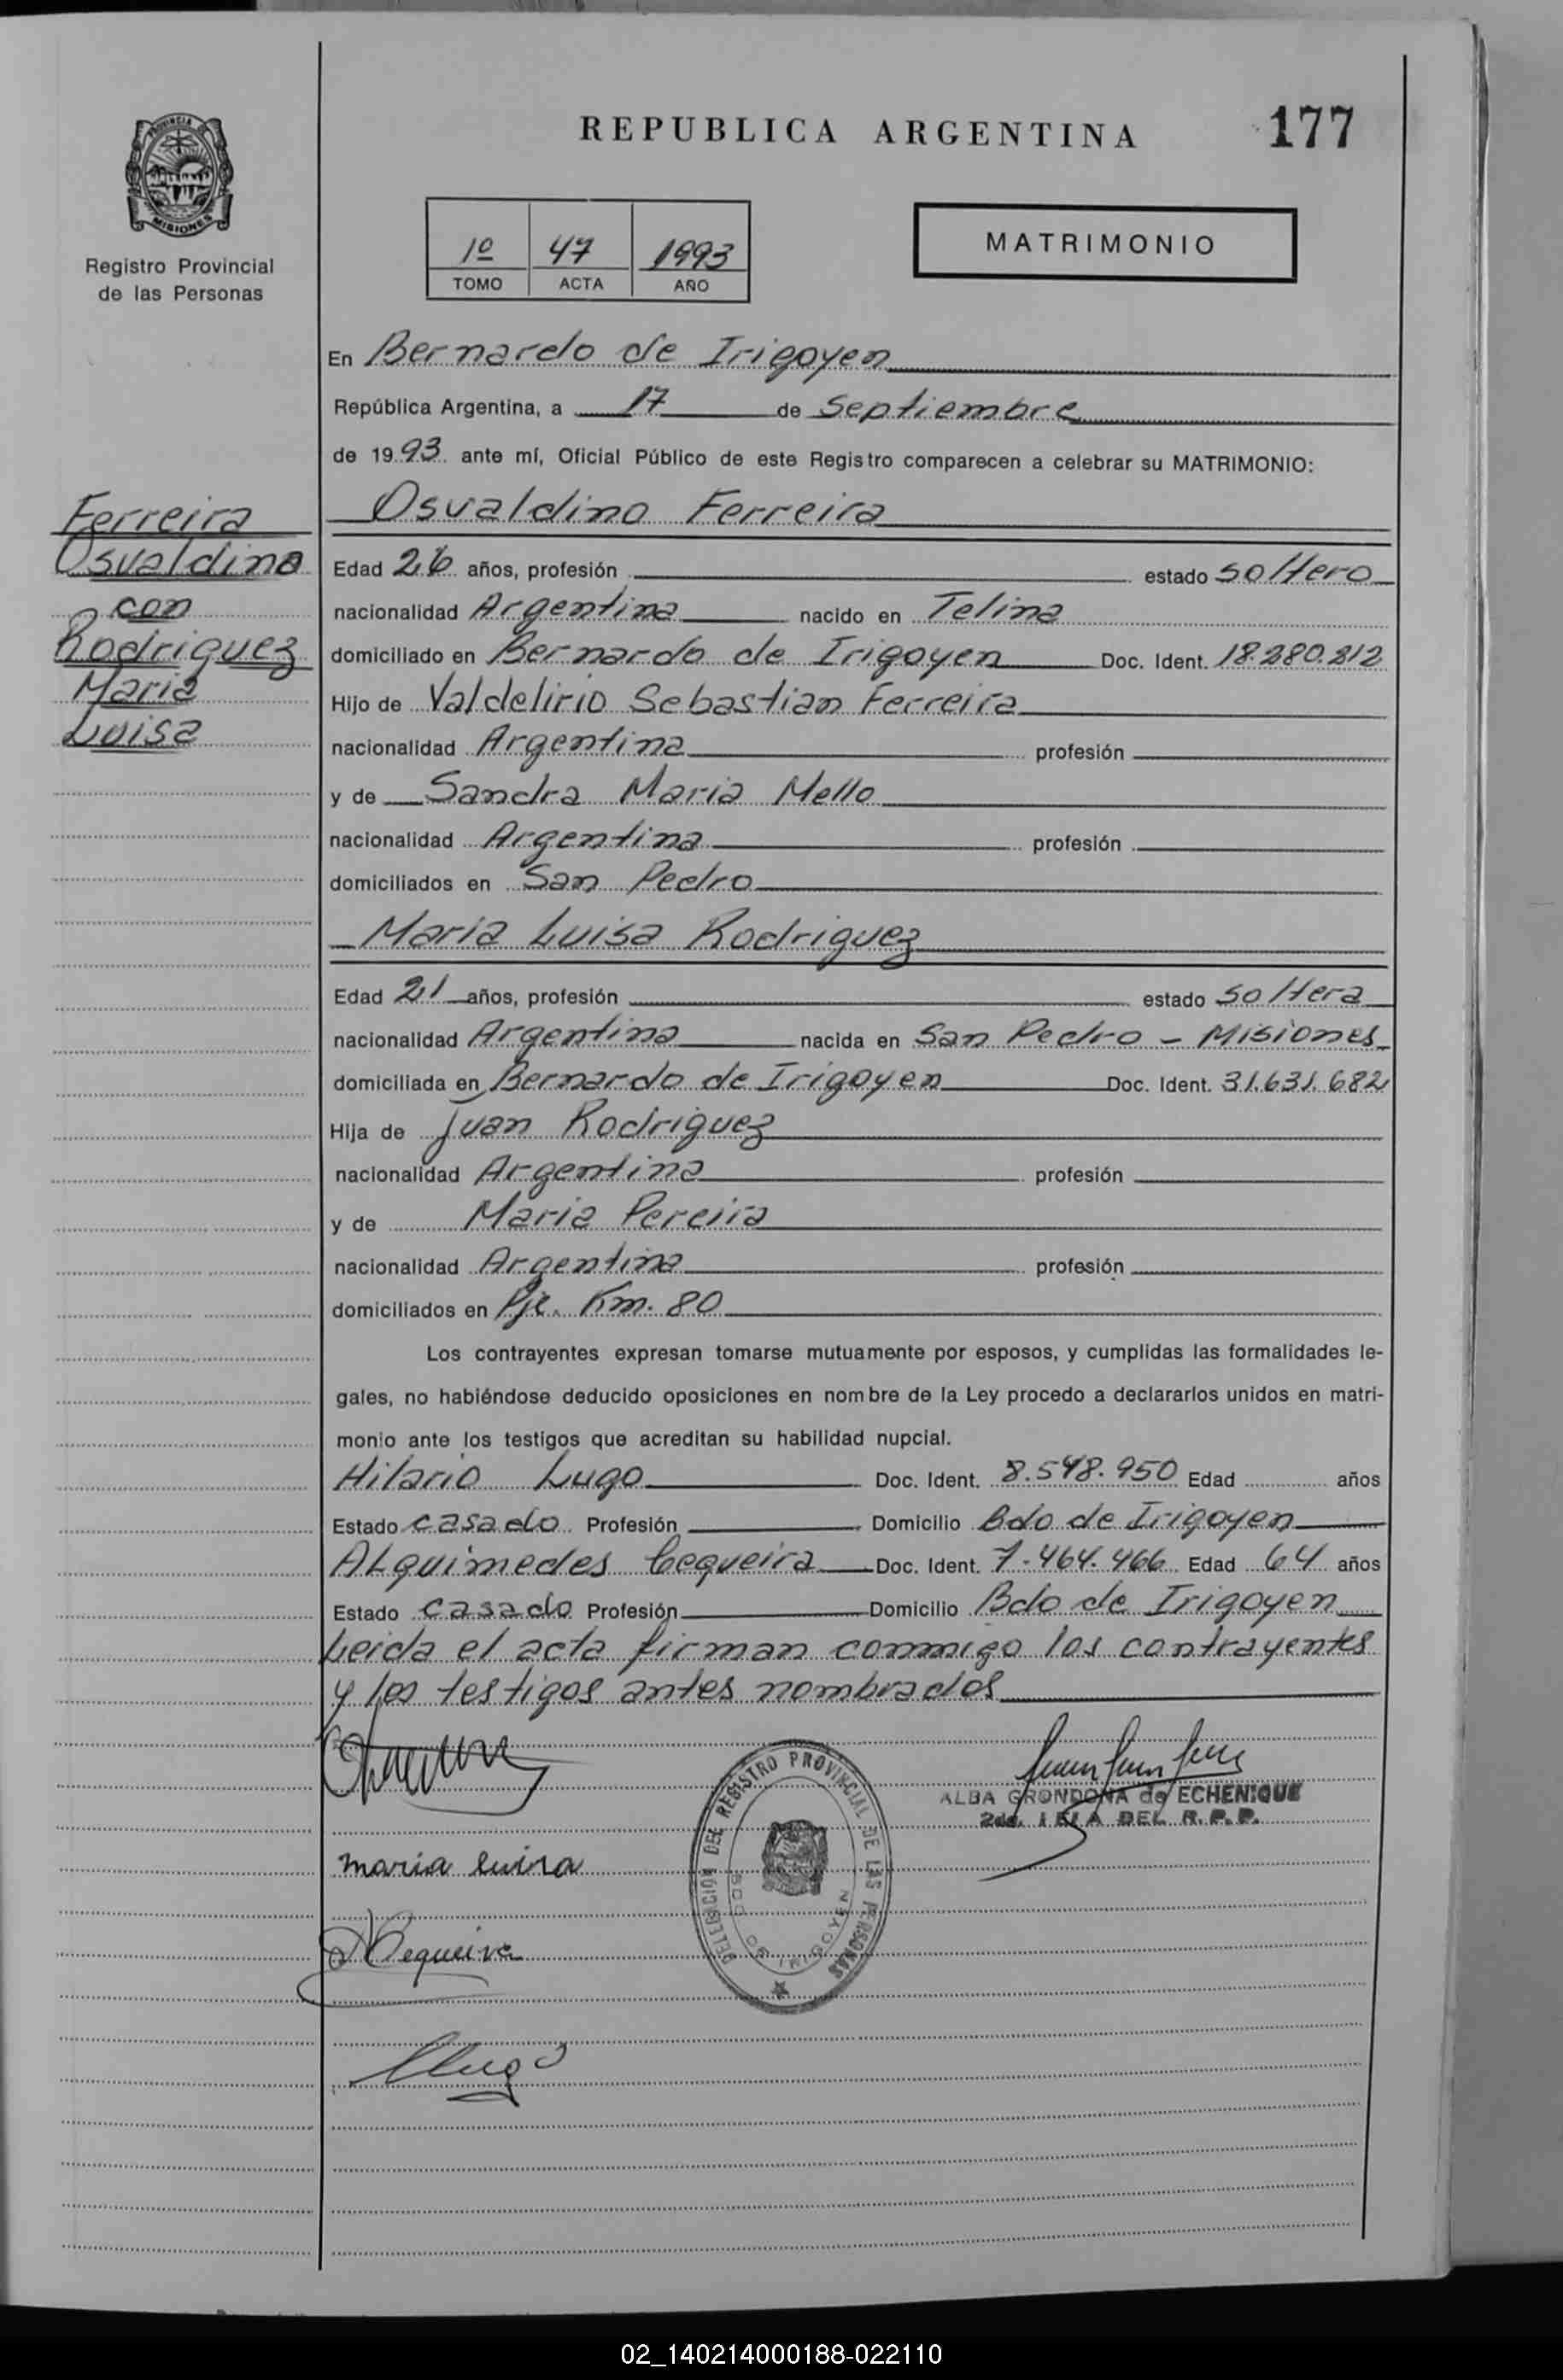 REPUBLICA ARGENTINA
177
PROVINCIA DE
MISIONES
Registro Provincial
de las Personas
1º 47 1993
TOMO ACTA AÑO
MATRIMONIO
En Bernardo de Irigoyen
República Argentina, a 17 de Septiembre
de 1993 ante mí, Oficial Público de este Registro comparecen a celebrar su MATRIMONIO:
Ferreira
Osvaldino
con
Rodriguez
Maria
Luisa
Osvaldino Ferreira
Edad 26 años, profesión estado soltero
nacionalidad Argentina nacido en Telina
domiciliado en Bernardo de Irigoyen Doc. Ident. 18.280.212
Hijo de Valdelirio Sebastian Ferreira
nacionalidad Argentina profesión
y de Sandra Maria Mello
nacionalidad Argentina profesión
domiciliados en San Pedro
Maria Luisa Rodriguez
Edad 21 años, profesión estado soltera
nacionalidad Argentina nacida en San Pedro - Misiones
domiciliada en Bernardo de Irigoyen Doc. Ident. 31.631.682
Hija de Juan Rodriguez
nacionalidad Argentina profesión
y de Maria Pereira
nacionalidad Argentina profesión
domiciliados en Pje. Km. 80
Los contrayentes expresan tomarse mutuamente por esposos, y cumplidas las formalidades le-
gales, no habiéndose deducido oposiciones en nombre de la Ley procedo a declararlos unidos en matri-
monio ante los testigos que acreditan su habilidad nupcial.
Hilario Lugo Doc. Ident. 8.548.950 Edad años
Estado casado Profesión Domicilio Bdo de Irigoyen
ALquimedes Cequeira Doc. Ident. 7.464.466 Edad 64 años
Estado casado Profesión Domicilio Bdo de Irigoyen
Leida el acta firman conmigo los contrayentes
y los testigos antes nombrados
ALBA GRONDONA de ECHENIQUE
DEL R.P.P.
DELEGACION DEL REGISTRO PROVINCIAL DE LAS PERSONAS
BDO DE IRIGOYEN
maria luisa
Cequeira
Lugo
02_140214000188-022110